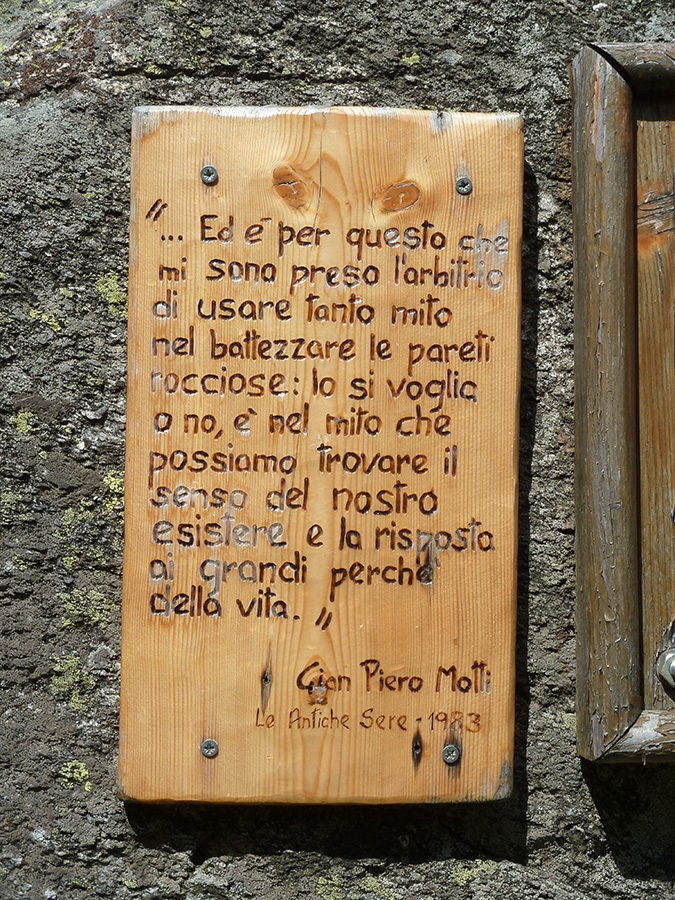 "... Ed è per questo che
mi sono preso l'arbitrio
di usare tanto mito
nel battezzare le pareti
rocciose: lo si voglia
o no, è nel mito che
possiamo trovare il
senso del nostro
esistere e la risposta
ai grandi perché
della vita."
Gian Piero Motti
Le Antiche Sere - 1983